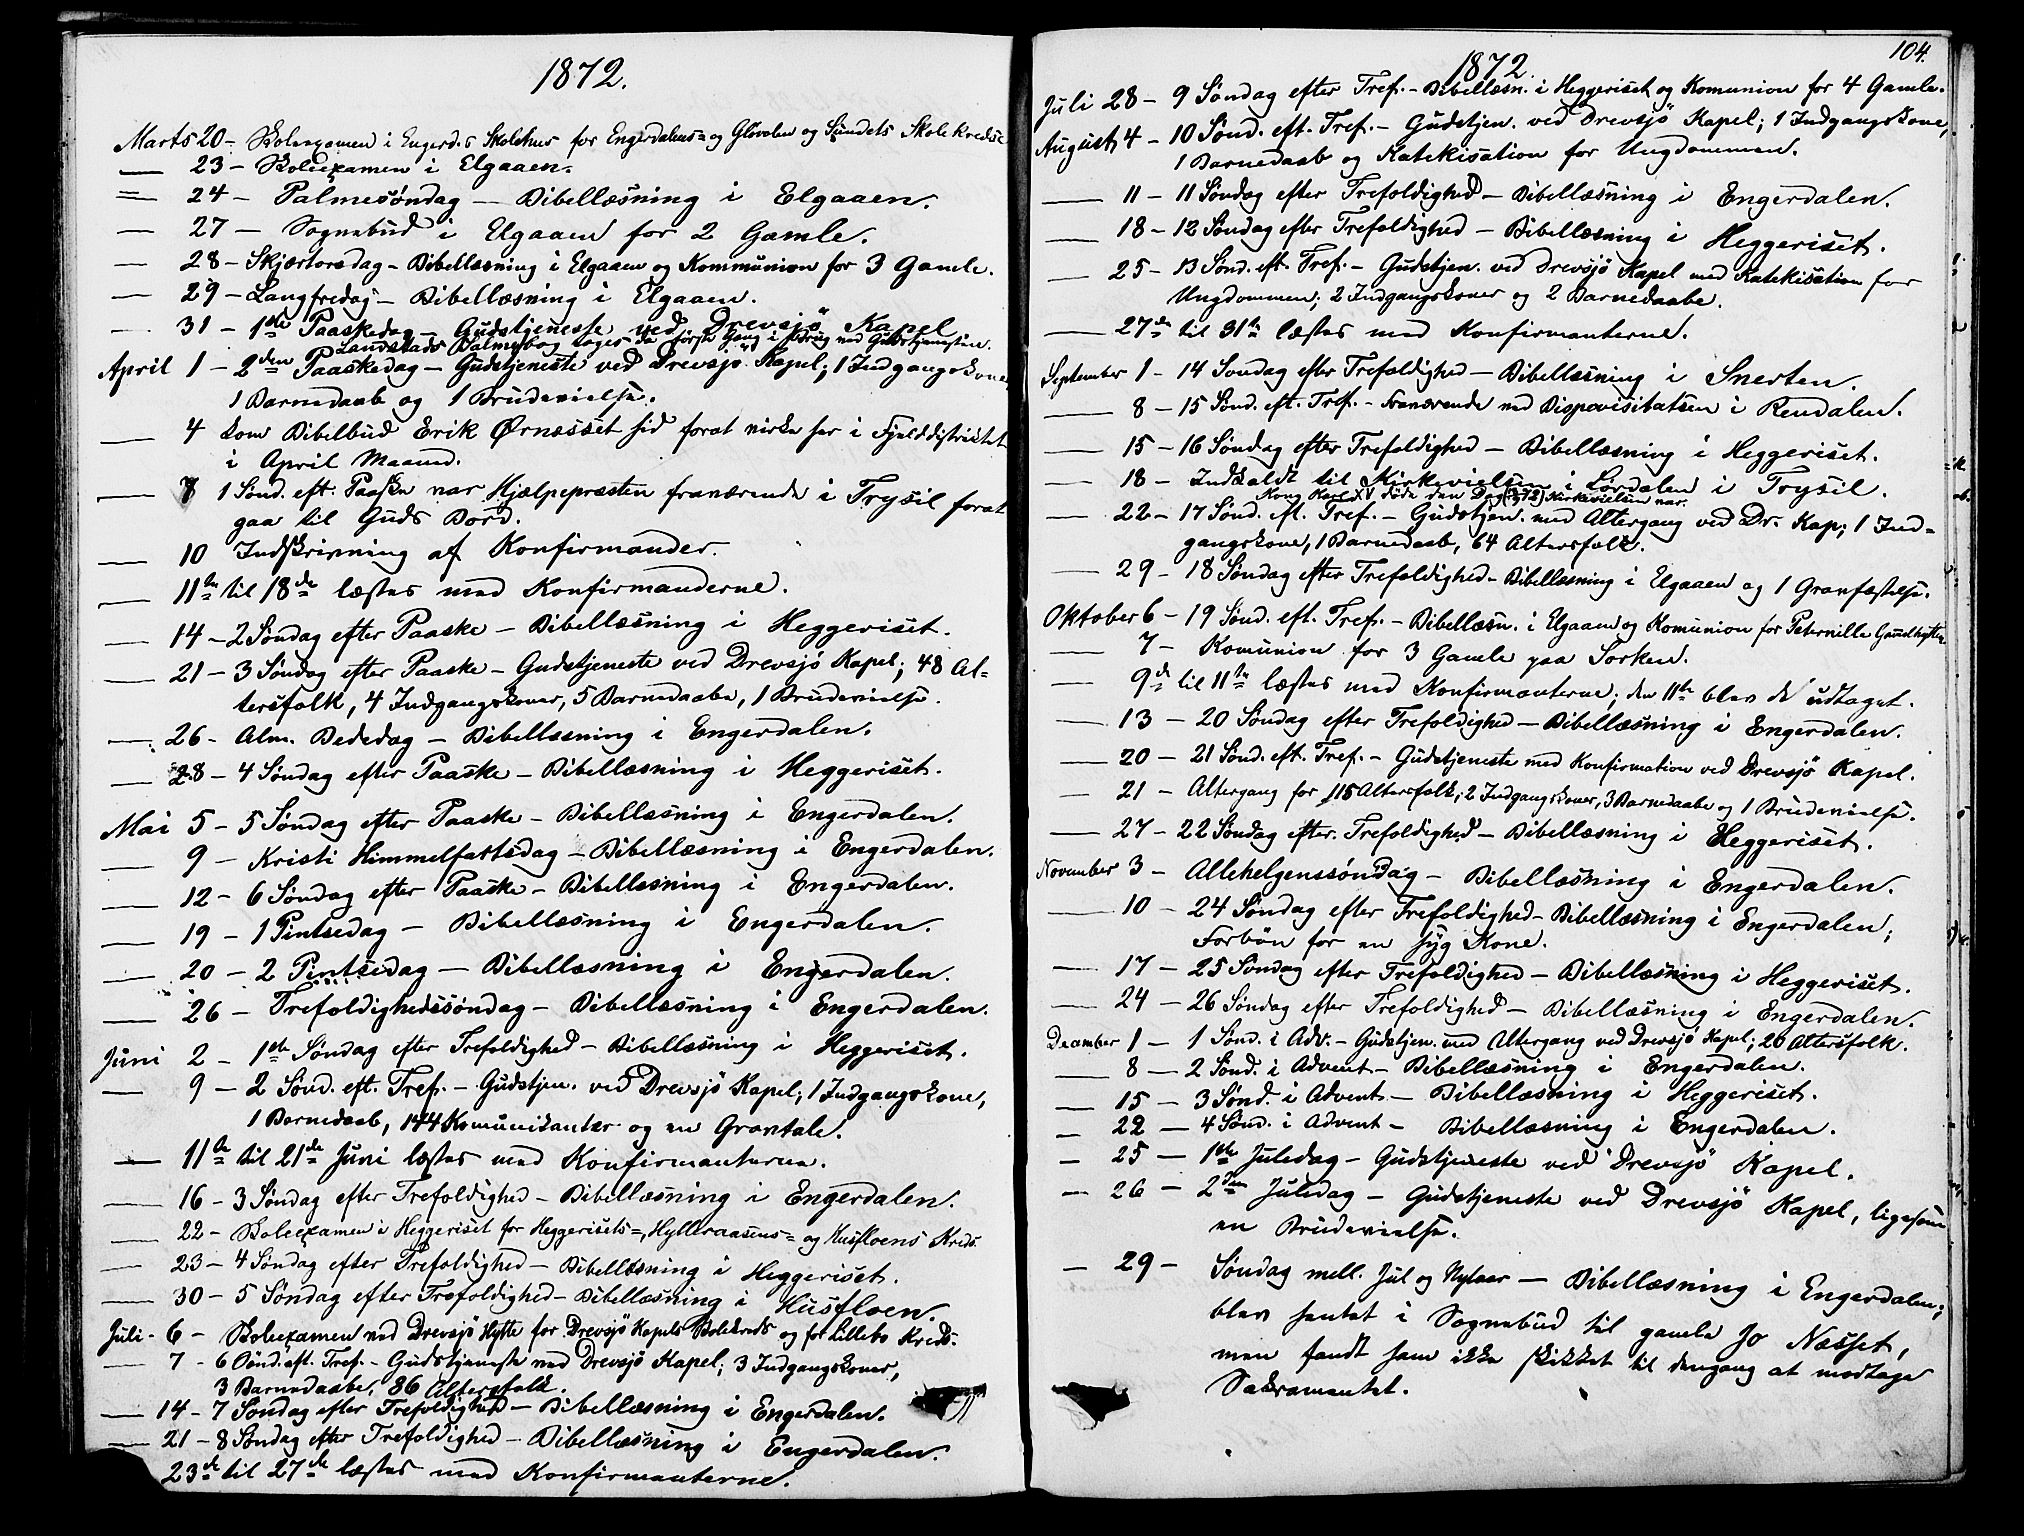 1872.
Marts 20 - Skoleexamen i Engerd.s Skolehus for Engerdalens= og Gløvolen og Sundets Skolekredse
— 23 - Skoleexamen i Elgaaen.
— 24 - Palmesøndag - Bibellæsning i Elgaaen.
— 27 - Sognebud i Elgaaen for 2 Gamle.
— 28 - Skjærtorsdag - Bibellæsning i Elgaaen og Kommunion for 3 Gamle.
— 29 - Langfredag - Bibellæsning i Elgaaen.
— 31 - 1ste Paaskedag - Gudstjeneste ved Drevsjö Kapel
Landstads Salmebog toges da første Gang i Brug ved Gudstjenesten.
April 1 - 2den Paaskedag - Gudstjeneste ved Drevsjö Kapel; 1 Indgangskone
1 Barnedaab og 1 Brudevielse.
— 4 kom Bibelbud Erik Ørnæsset hid forat virke her i Fjelddistriktet
i April Maaned.
— 7 1 Sønd. eft. Paaske var Hjælpepræsten fraværende i Trysil forat
gaa til Guds Bord.
— 10 Indskrivning af Konfirmander.
— 11te til 18de læstes med Konfirmanderne.
— 14 - 2 Søndag efter Paaske - Bibellæsning i Heggeriset.
— 21 - 3 Søndag efter Paaske - Gudstjeneste ved Drevsjö Kapel; 48 Al-
tersfolk, 4 Indgangskoner, 5 Barnedaabe, 1 Brudevielse.
— 26 - Alm. Bededag - Bibellæsning i Engerdalen.
— 28 - 4 Søndag efter Paaske - Bibellæsning i Heggeriset.
Mai 5 - 5 Søndag efter Paaske - Bibellæsning i Engerdalen.
— 9 - Kristi Himmelfartsdag - Bibellæsning i Engerdalen.
— 12 - 6 Søndag efter Paaske - Bibellæsning i Engerdalen.
— 19 - 1 Pintsedag - Bibellæsning i Engerdalen.
— 20 - 2 Pintsedag - Bibellæsning i Engerdalen.
— 26 - Trefoldighedssöndag - Bibellæsning i Engerdalen.
Juni 2 - 1ste Søndag efter Trefoldighed - Bibellæsning i Heggeriset.
— 9 - 2 Sønd. eft. Tref. - Gudstjen. ved Drevsjö Kapel; 1 Indgangskone,
1 Barnedaab, 144 Komunikanter og en Gravtale.
— 11te til 21de Juni læstes med Konfirmanterne.
— 16 - 3 Søndag efter Trefoldighed - Bibellæsning i Engerdalen.
— 22 - Skoleexamen i Heggeriset for Heggerisets=, Hylleraasens= og Husfloens Kreds.
— 23 - 4 Søndag efter Trefoldighed - Bibellæsning i Heggeriset.
— 30 - 5 Søndag efter Trefoldighed - Bibellæsning i Husfloen.
Juli - 6 - Skoleexamen ved Drevsjö Hytte for Drevsjö Kapels Skolekreds og for Lillebo Kreds.
— 7 - 6 Sönd. eft. Tref. - Gudstjeneste ved Drevsjö Kapel; 3 Indgangskoner,
3 Barnedaabe, 86 Altersfolk.
— 14 - 7 Søndag efter Trefoldighed - Bibellæsning i Engerdalen.
— 21 - 8 Søndag efter Trefoldighed - Bibellæsning i Engerdalen.
23de til 27de læstes med Konfirmanterne.
104.
1872.
Juli 28 - 9 Søndag efter Tref. - Bibellæsn. i Heggeriset og Komunion for 4 Gamle.
August 4 - 10 Sønd. eft. Tref. - Gudstjen. ved Drevsjö Kapel; 1 Indgangskone,
1 Barnedaab og Katekisation for Ungdommen.
— 11 - 11 Søndag efter Trefoldighed - Bibellæsning i Engerdalen.
— 18 - 12 Søndag efter Trefoldighed - Bibellæsning i Heggeriset.
— 25 - 13 Sønd. eft. Tref. - Gudstjen. ved Drevsjö Kapel med Katekisation for
Ungdommen; 2 Indgangskoner og 2 Barnedaabe.
— 27de til 31te læstes med Konfirmanterne.
September 1 - 14 Søndag efter Trefoldighed - Bibellæsning i Snerten.
— 8 - 15 Sønd. eft. Tref. - Fraværende ved Bispevisitatsen i Rendalen.
— 15 - 16 Søndag efter Trefoldighed - Bibellæsning i Heggeriset.
— 18 - Indkaldt til Kirkevielsen i Lørdalen i Trysil.
Kong Karl XV döde den Dag (18/9 72) Kirkevielsen var.
— 22 - 17 Sønd. eft. Tref. - Gudstjen. med Altergang ved Dr. Kap; 1 Ind-
gangskone, 1 Barnedaab, 64 Altersfolk.
— 29 - 18 Søndag efter Trefoldighed - Bibellæsning i Elgaaen og 1 Gravfæstelse.
Oktober 6 - 19 Sønd. eft. Tref. - Bibellæsn. i Elgaaen og Komunion for Peternille
— 7 - Komunion for 3 Gamle paa Sorken.
— 9de til 11te læstes med Konfirmanterne; den 11te blev de udtaget.
— 13 - 20 Søndag efter Trefoldighed - Bibellæsning i Engerdalen.
— 20 - 21 Sønd. eft. Tref. - Gudstjeneste med Konfirmation ved Drevsjö Kapel.
— 21 - Altergang for 115 Altersfolk; 2 Indgangskoner, 3 Barnedaabe og 1 Brudevielse.
— 27 - 22 Søndag efter Trefoldighed - Bibellæsning i Heggeriset.
November 3 - Allehelgenssöndag - Bibellæsning i Engerdalen.
— 10 - 24 Søndag efter Trefoldighed - Bibellæsning i Engerdalen;
Forbön for en syg Kone.
— 17 - 25 Søndag efter Trefoldighed - Bibellæsning i Heggeriset.
— 24 - 26 Søndag efter Trefoldighed - Bibellæsning i Engerdalen.
December 1 - 1 Sønd. i Adv. - Gudstjen. med Altergang ved Drevsjö Kapel; 20 Altersfolk.
— 8 - 2 Sønd. i Advent - Bibellæsning i Engerdalen.
— 15 - 3 Sønd. i Advent - Bibellæsning i Heggeriset.
— 22 - 4 Sønd. i Advent - Bibellæsning i Engerdalen.
— 25 - 1ste Juledag - Gudstjeneste ved Drevsjö Kapel.
— 26 - 2den Juledag - Gudstjeneste ved Drevsjö Kapel, ligesom
en Brudevielse.
— 29 - Søndag mell. Jul og Nytaar - Bibellæsning i Engerdalen;
blev hentet i Sognebud til gamle Jo Næsset,
men fandt ham ikke skikket til dengang at modtage
Sakramentet.